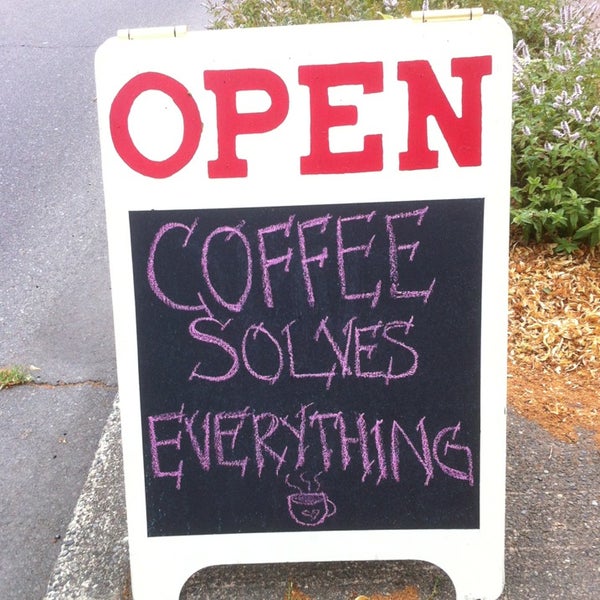 OPEN
COFFEE
SOLVES
EVERYTHING